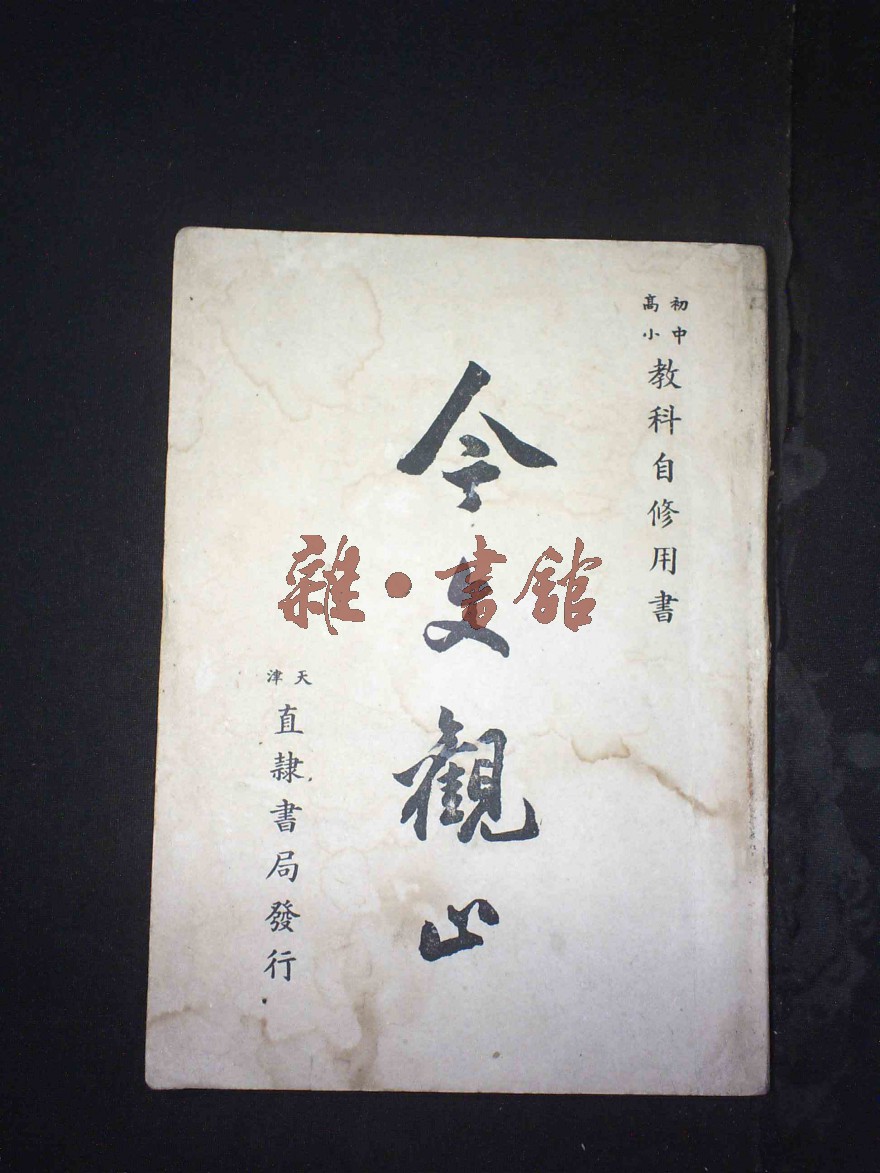 初中
高小
教科自修用書
今文観止
天津
直隸書局發行
雜·書館